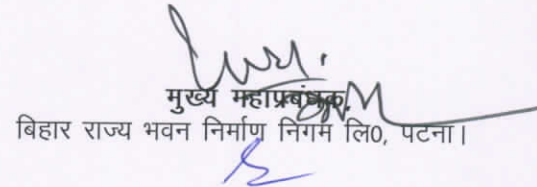 मुख्य महाप्रबंधक,
बिहार राज्य भवन निर्माण निगम लि0, पटना।